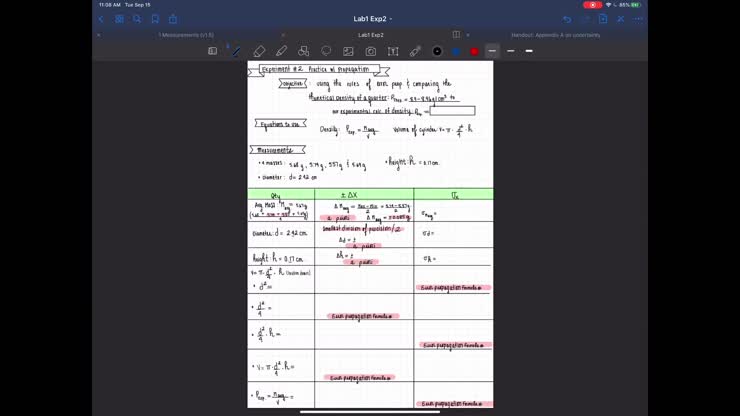 11:08 AM Tue Sep 15
85%
Lab1 Exp2
1 Measurements (v1.5)
Lab1 Exp2
Handout: Appendix A on uncertainty
Experiment #2 Practice w/ Propagation
Objective: using the rules of error prop. & comparing the
theoretical density of a quarter:
to
our experimental calc of density
Equations to use
Density: ρexp. = mavg/V Volume of cylinder V = π · d²/4 · h
Measurements
• 4 masses:
• height: h = 0.17cm
• diameter: d = 2.42 cm
Qty
± ΔX
Avg Mass:
Δ mavg =
a priori
σmavg =
Diameter: d = 2.42 cm
smallest division of precision/2
Δd = ±
a priori
σd =
height: h = 0.17 cm
Δh = ±
a priori
σh =
V = π · d²/4 · h
• d² =
Error propagation formula
• d²/4 =
Error propagation formula
• d²/4 · h =
Error propagation formula
• V = π · d²/4 · h =
Error propagation formula
• ρexp. = mavg/V =
Error propagation formula